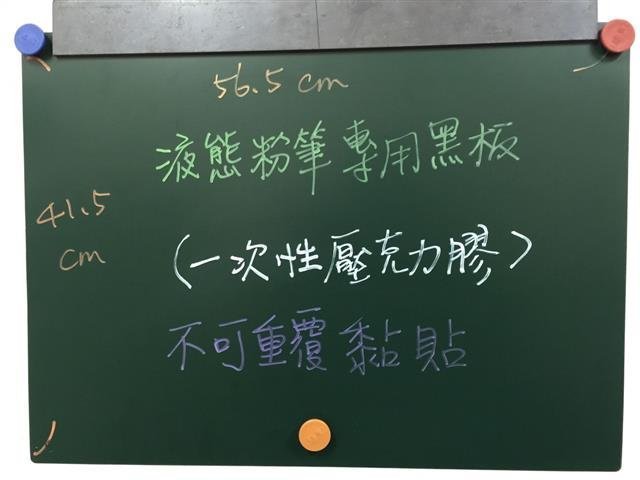 56.5 cm
液態粉筆專用黑板
41.5
cm
(一次性壓克力膠)
不可重覆黏貼